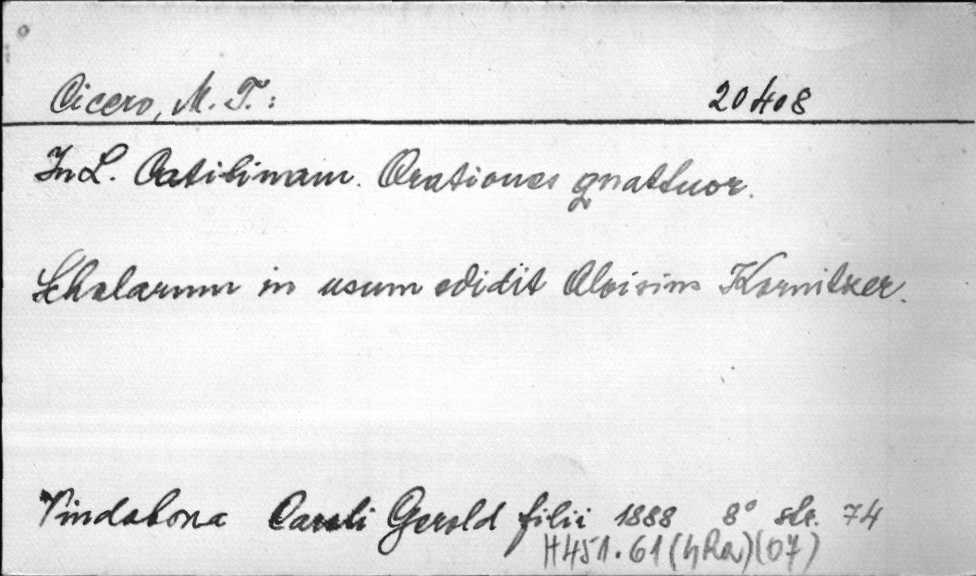 Cicero, M. T.: 20408
In L. Catilinam. Orationes quattuor.
Scholarum in usum edidit Aloisius Kornitzer.
Vindobona Caroli Gerold filii 1888 8° str. 74
H451.61(hRa)(07)